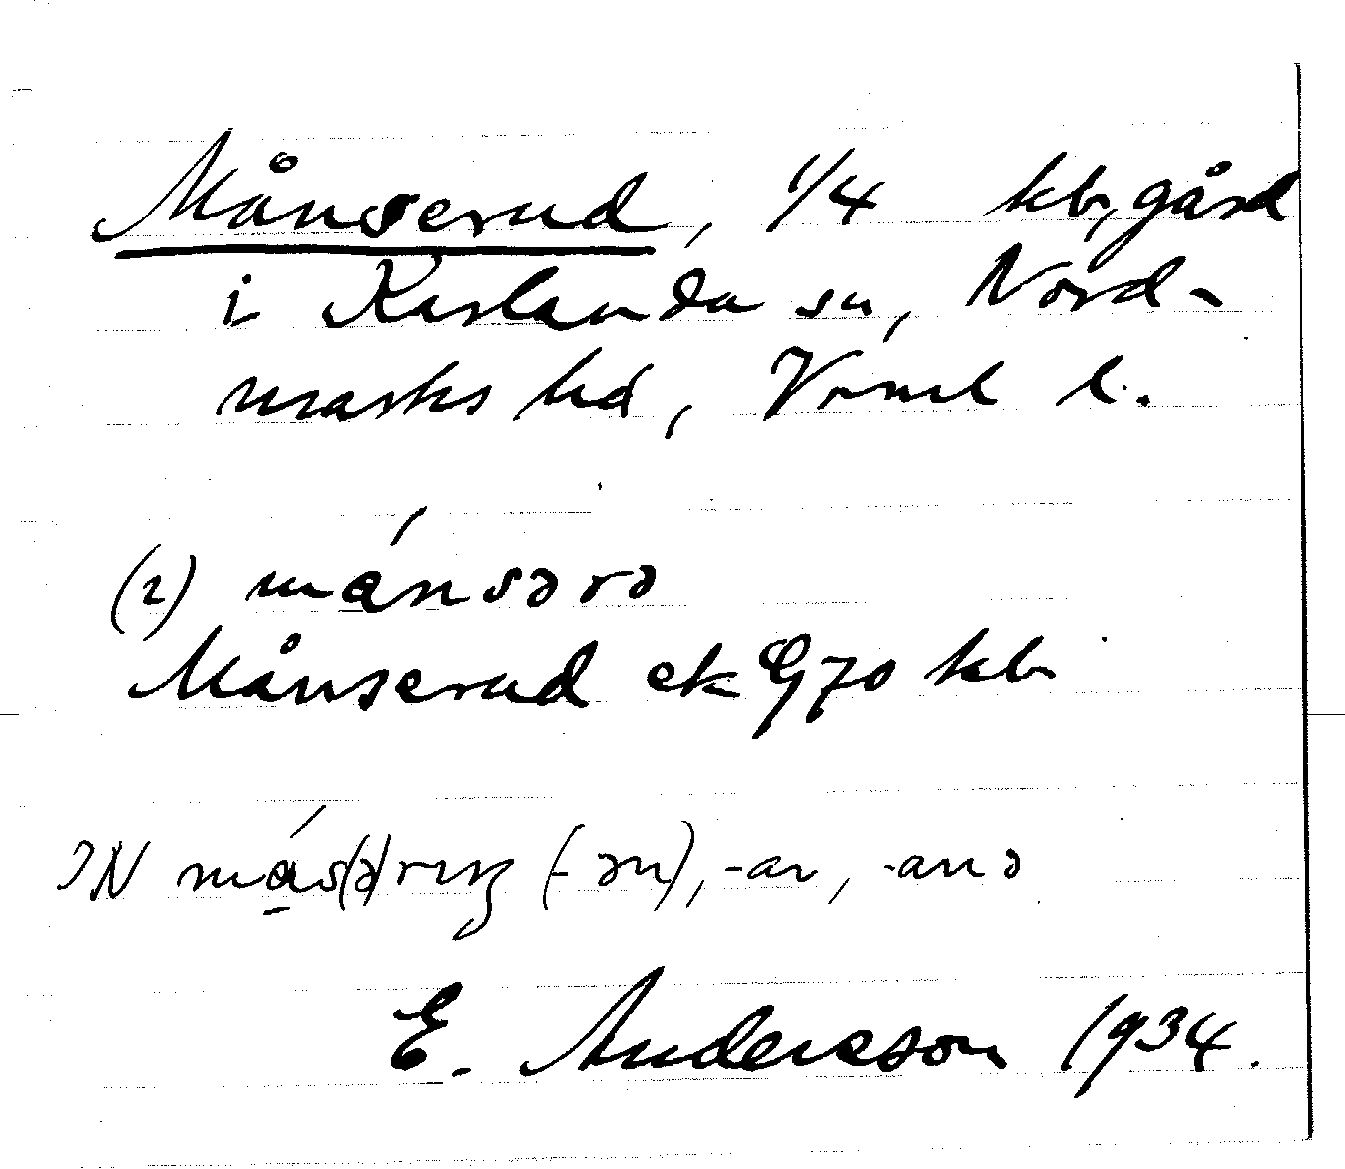 Månserud, 1/4 kbr,gård
i Karlanda sn, Nord-
marks hd, Värml l.
(2) mánsərə
Månserud ek G70 kbr
IN más(ə)ruŋ (-ən), -ar, -anə
E. Andersson 1934.